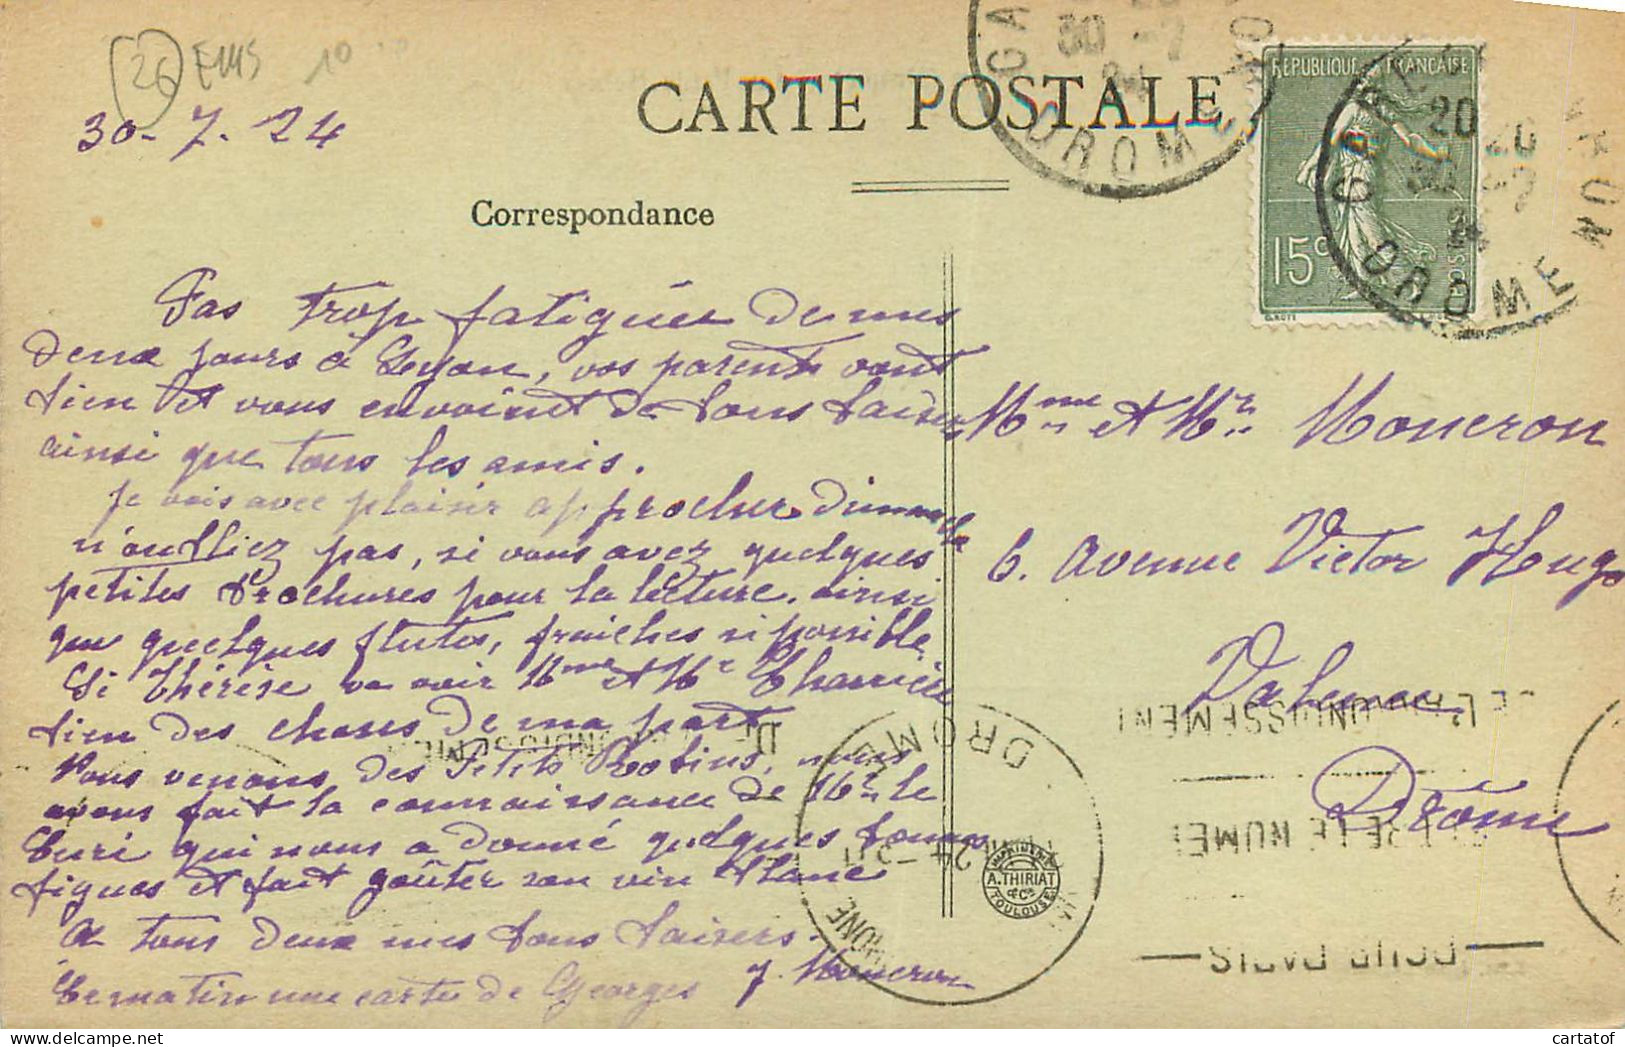 26 E145 10
30-7-24
CARTE POSTALE
Correspondance
RÉPUBLIQUE FRANÇAISE
15c POSTES
DROME
20 30 -7 24
DROME
Pas trop fatigués de nos
deux jours à Lyon, vos parents vont
bien et vous envoient de bons baisers
ainsi que tous les amis.
Je vois avec plaisir approcher dimanche
n'oubliez pas, si vous avez quelques
petites brochures pour la lecture. ainsi
que quelques flutes, fraîches si possible
Si Thérèse va voir Mme et Mr
bien des choses de ma part
Nous venons des Petits Robins, nous
avons fait la connaissance de Mr le
Curé qui nous a donné quelques bonnes
figues et fait goûter son vin blanc
A tous deux mes bons baisers.
J. Moncron
Ce matin une carte de Georges
Mme et Mr Moncron
6. Avenue Victor Hugo
Valence
Drôme
DROME
IMPRIMERIE
A. THIRIAT
& Cie
TOULOUSE
POUR PARIS
cartatof